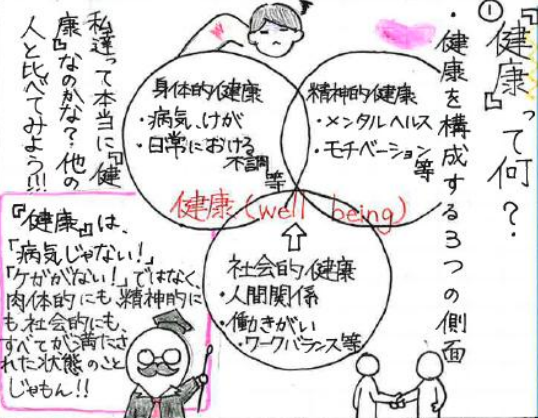 ①『健康』って何？
・健康を構成する3つの側面
身体的健康
・病気、けが
・日常における
不調等
精神的健康
・メンタルヘルス
・モチベーション
等
健康(well being)
社会的健康
・人間関係
・働きがい
・ワークバランス等
私達って本当に『健
康』なのかな？他の
人と比べてみよう!!!
『健康』は、
「病気じゃない！」
「ケガがない！」ではなく、
肉体的にも、精神的に
も、社会的にも、
すべてが満たさ
れた状態のこと
じゃもん!!